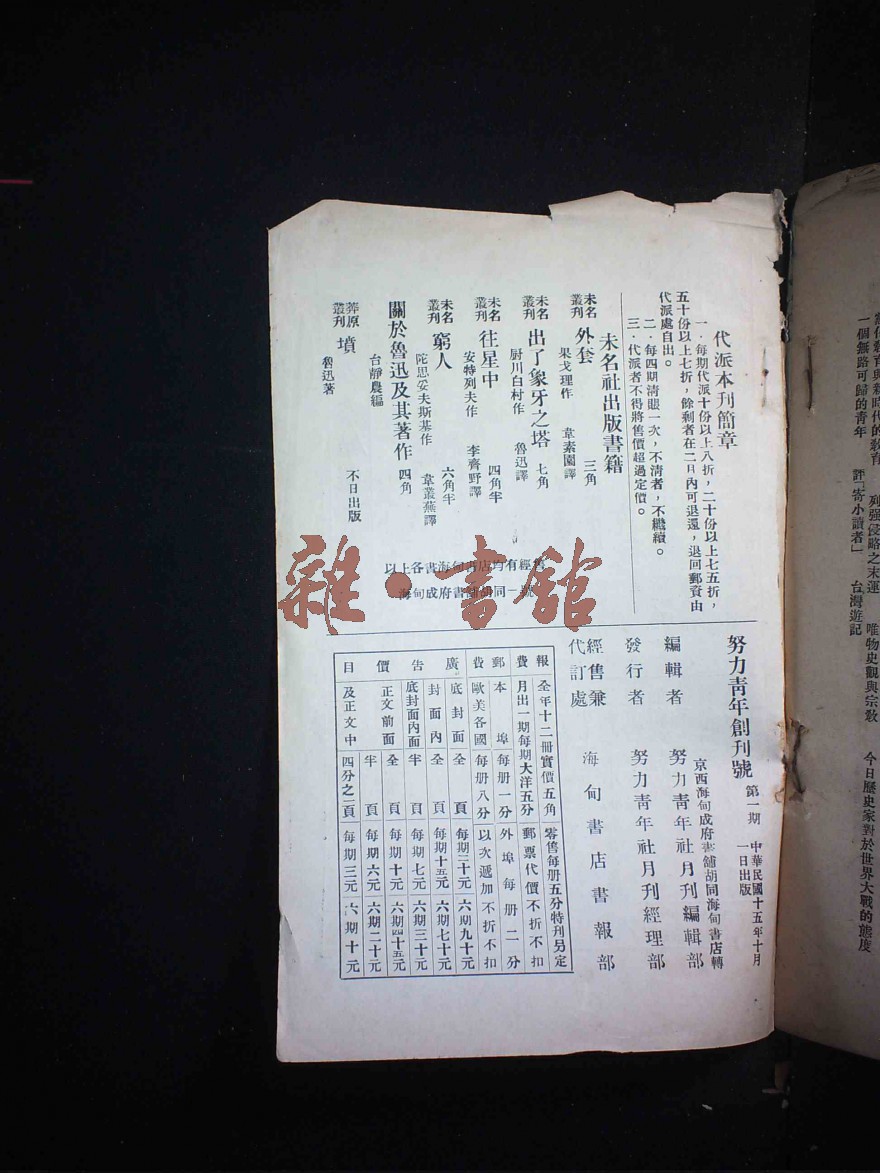 代派本刊簡章
一．每期代派十份以上八折，二十份以上七五折，
五十份以上七折，餘剩者在二月內可退還，退回郵資由
代派處自出。
二．每四期清賬一次，不清者，不繼續。
三．代派者不得將售價超過定價。
未名社出版書籍
未名叢刊 外套 三角
果戈理作 韋素園譯
未名叢刊 出了象牙之塔 七角
厨川白村作 魯迅譯
未名叢刊 往星中 四角半
安特列夫作 李霽野譯
未名叢刊 窮人 六角半
陀思妥夫斯基作 韋叢蕪譯
關於魯迅及其著作 四角
台靜農編
莽原叢刊 墳 不日出版
魯迅著
以上各書海甸書店均有經售
海甸成府書鋪胡同一號
雜·書館
努力靑年創刊號 第一期 中華民國十五年十月一日出版
京西海甸成府書舖胡同海甸書店轉
編輯者 努力靑年社月刊編輯部
發行者 努力靑年社月刊經理部
經售兼代訂處 海甸書店書報部
報費 全年十二冊實價五角 零售每册五分特刊另定
月出一期每期大洋五分 郵票代價不折不扣
郵費 本埠每册一分 外埠每册二分
歐美各國每册八分 以次遞加不折不扣
廣告價目
底封面 全頁 每期二十元 六期九十元
封面內 全頁 每期十五元 六期七十元
底封面內面 半頁 每期七元 六期三十元
正文前面 全頁 每期十元 六期四十五元
及正文中 半頁 每期六元 六期二十元
四分之一頁 每期三元 六期十元
當代敎育與新時代的敎育 列强侵略之末運 唯物史觀與宗敎 今日歷史家對於世界大戰的態度
一個無路可歸的靑年 評「寄小讀者」 台灣遊記